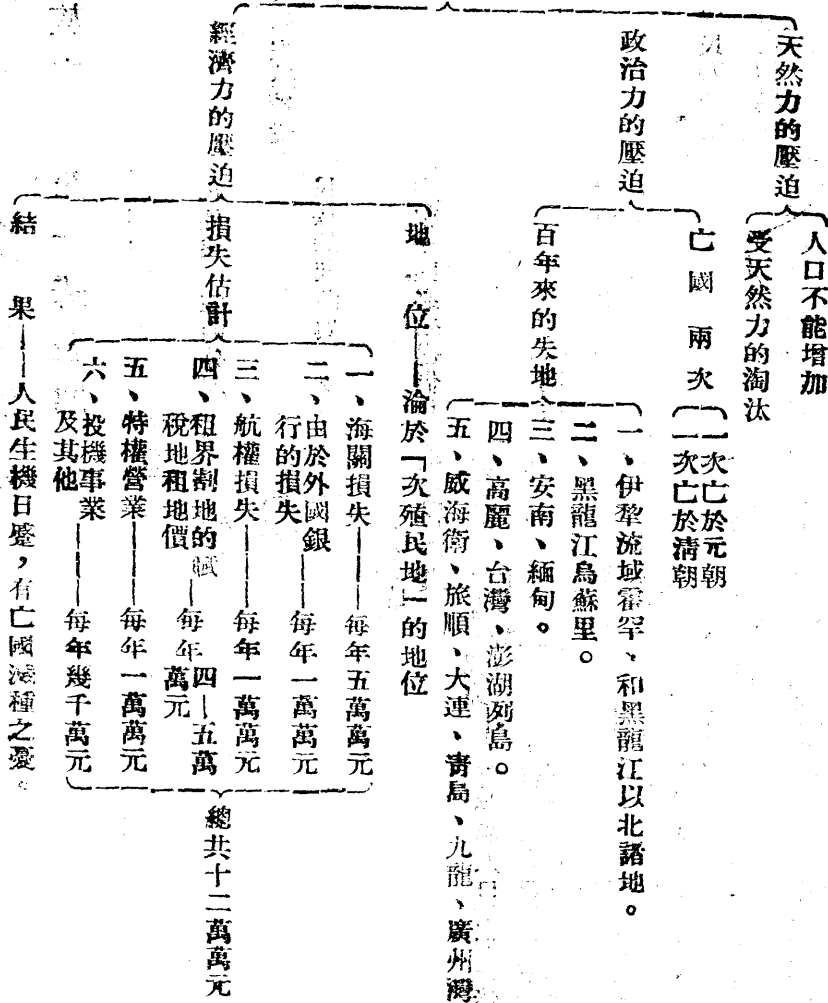 天然力的壓迫
人口不能增加
受天然力的淘汰
政治力的壓迫
亡國兩次
一次亡於元朝
一次亡於清朝
百年來的失地
一、伊犂流域霍罕、和黑龍江以北諸地。
二、黑龍江烏蘇里。
三、安南、緬甸。
四、高麗、台灣、澎湖列島。
五、威海衛、旅順、大連、青島、九龍、廣州灣
經濟力的壓迫
地位——淪於「次殖民地」的地位
損失估計
一、海關損失——每年五萬萬元
二、由於外國銀
行的損失——每年一萬萬元
三、航權損失——每年一萬萬元
四、租界割地的賦
稅地租地價——每年四—五萬
萬元
五、特權營業——每年一萬萬元
六、投機事業
及其他——每年幾千萬元
總共十二萬萬元
結果——人民生機日蹙，有亡國滅種之憂。